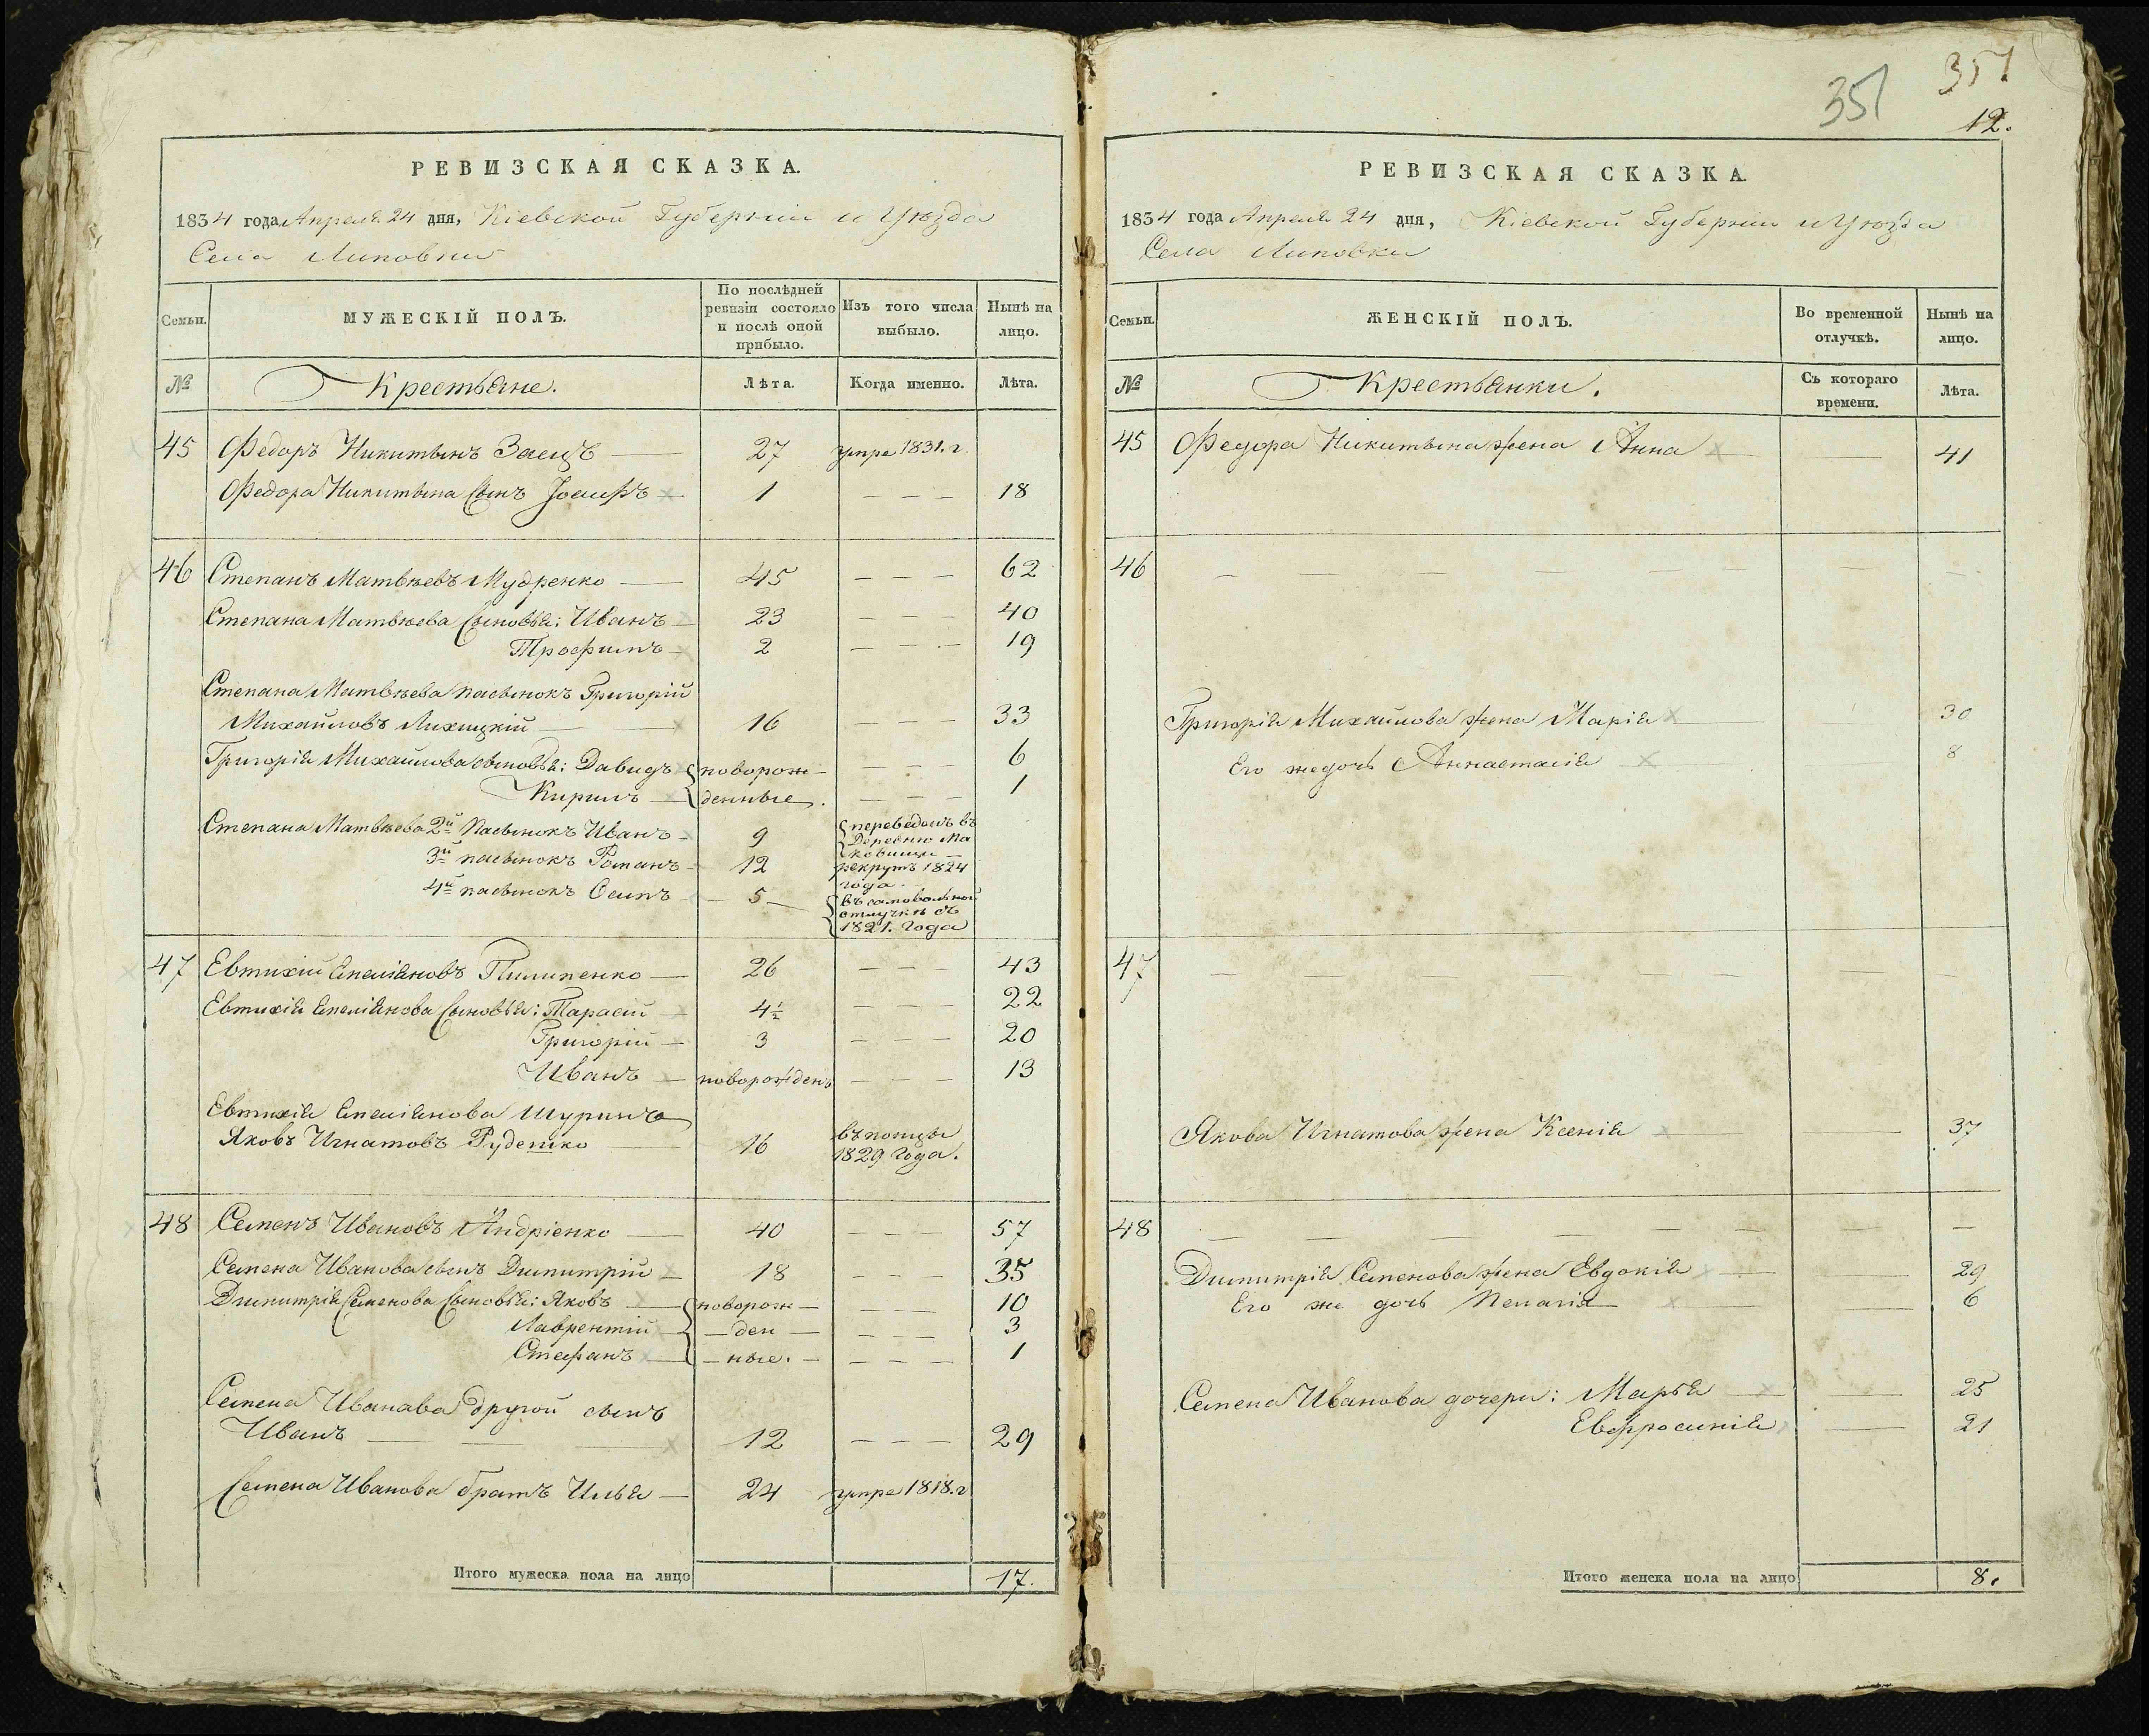 РЕВИЗСКАЯ СКАЗКА.
1834 года Апреля 24 дня, Кіевской Губерніи и Уѣзда
Села Липовки
Семьи.
МУЖЕСКІЙ ПОЛЪ.
По послѣдней ревизіи состояло и послѣ оной прибыло.
Изъ того числа выбыло.
Нынѣ на лицо.
№ Крестьяне. Лѣта. Когда именно. Лѣта.
45 Федоръ Никитинъ Заецъ — 27 умре 1831. г.
Федора Никитина Сынъ Іосифъ — 1 — — — 18
46 Степанъ Матвѣевъ Мудренко — 45 — — — 62
Степана Матвѣева Сыновья: Иванъ — 23 — — — 40
Трофимъ — 2 — — — 19
Степана Матвѣева пасынокъ Григорій
Михайловъ Лихицкій — 16 — — — 33
Григорія Михайлова сыновья: Давидъ новорож- — — — 6
Кирилъ — денные. — — — 1
Степана Матвѣева 2й пасынокъ Иванъ — 9 переведенъ въ
Деревню Ма
ковищи —
3й пасынокъ Романъ — 12 рекрутъ 1824
года.
4й пасынокъ Осипъ — 5 — въ самовольной
отлучкѣ съ
1821. года
47 Евтихій Емеліановъ Пилипенко — 26 — — 43
Евтихія Емеліанова Сыновья: Тарасій — 4½ — — — 22
Григорій — 3 — — — 20
Иванъ — новорожденъ — — — 13
Евтихія Емеліанова Шуринъ
Яковъ Игнатовъ Руденко 16 въ
1829 года.
48 Семенъ Ивановъ Андріенко — 40 — — — 57
Семена Иванова сынъ Димитрій — 18 — — — 35
Димитрія Семенова Сыновья: Яковъ — новорож — — — — 10
Лаврентій — — ден — — — — 3
Стефанъ — — ные. — — — — 1
Семена Иванава другой сынъ
Иванъ — — — 12 — — — 29
Семена Иванова братъ Илья — 24 умре 1818. г
Итого мужеска пола на лицо 17.
351
351
12.
РЕВИЗСКАЯ СКАЗКА.
1834 года Апреля 24 дня, Кіевской Губерніи и Уѣзда
Села Липовки
Семьи.
ЖЕНСКІЙ ПОЛЪ.
Во временной отлучкѣ.
Нынѣ на лицо.
№ Крестьянки. Съ котораго времени. Лѣта.
45 Федора Никитина жена Анна — — 41
46 — — — — — — — —
Григорія Михайлова жена Марія 30
Его же дочь Аннастасія 8
47 — — — — — — — —
Якова Игнатова жена Ксенія — 37
48 — — — — — — — —
Димитрія Семенова жена Евдокія — — 29
Его же дочь Пелагія — — 6
Семена Иванова дочери: Марья — — 25
Евфросинія — 21
Итого женска пола на лицо 8.